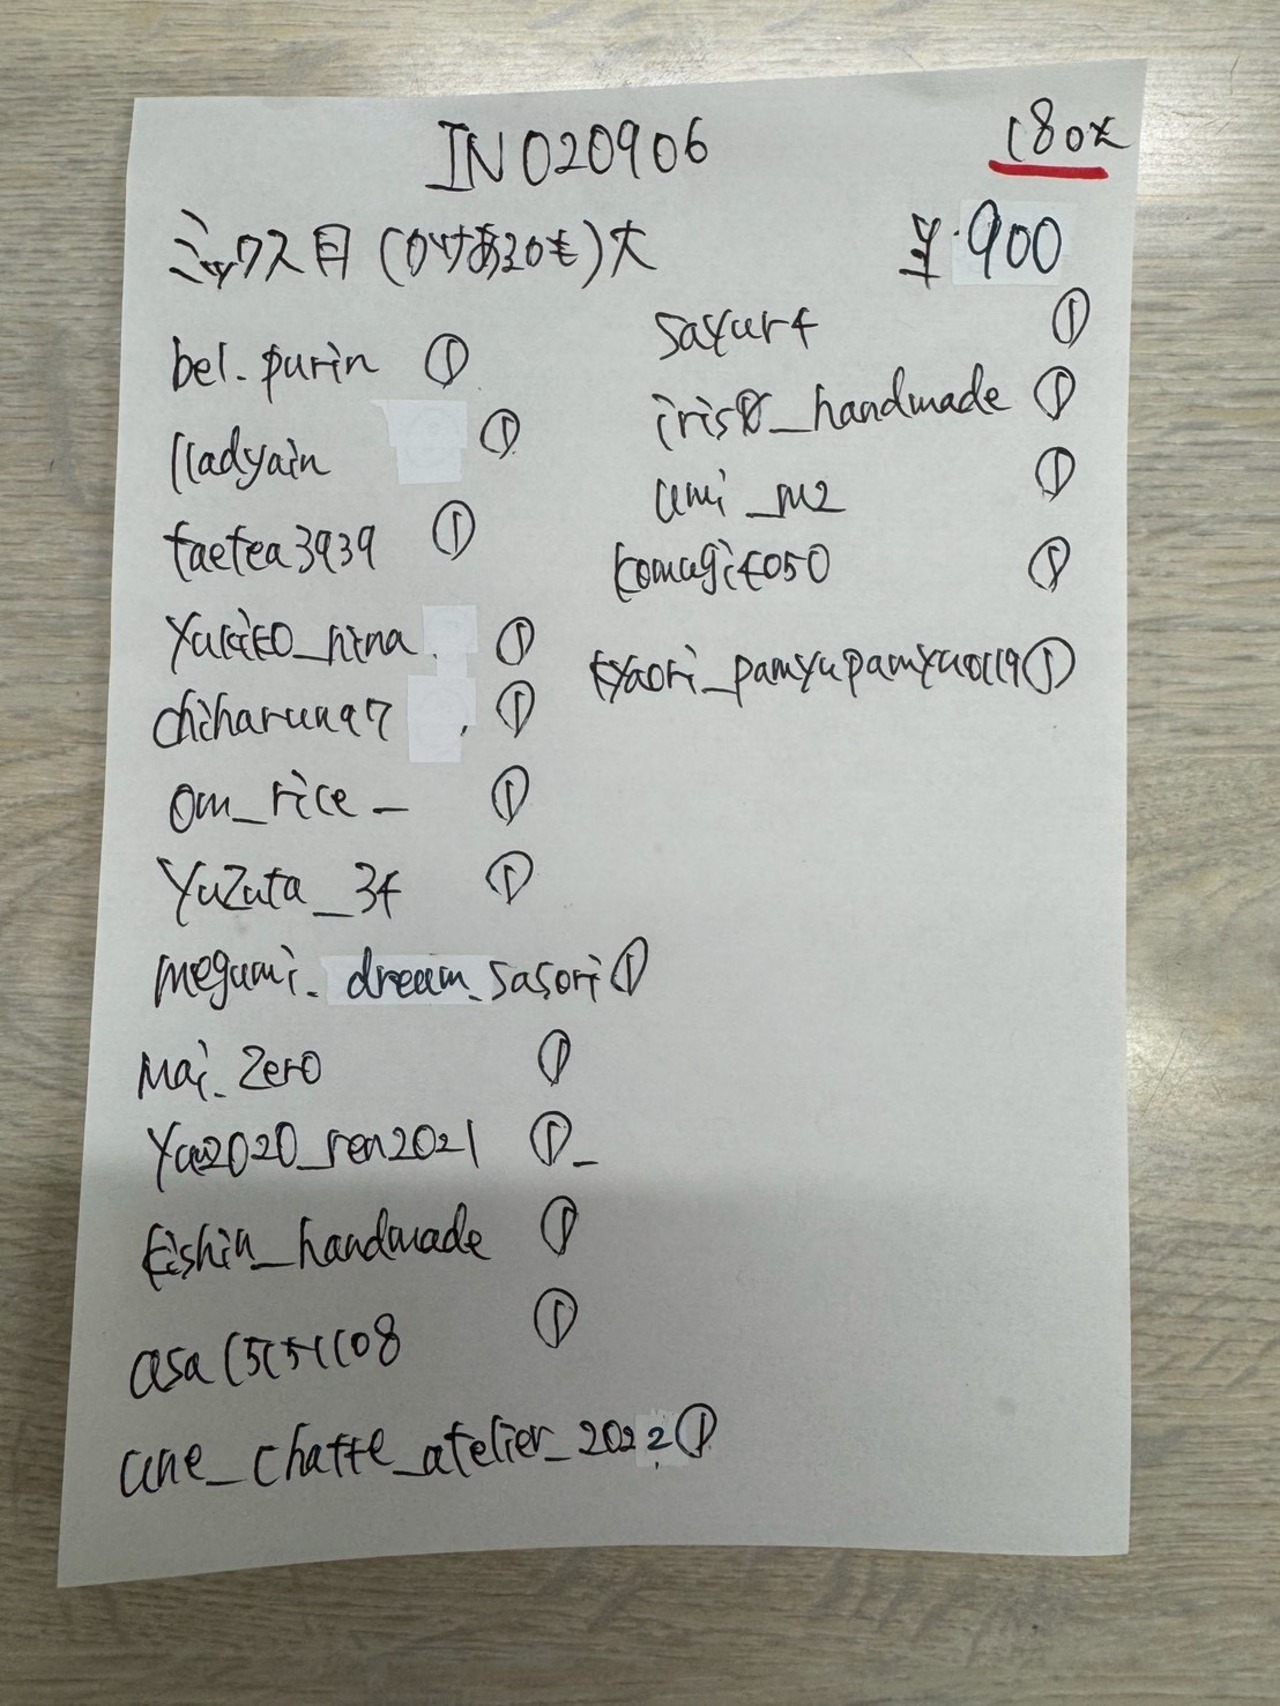 IN020906
180*
ミックス月(かけあるかも)大
¥900
bel.purin ①
lladyain ①
taetea3939 ①
yukiko_nina ①
chiharuna97 ①
om_rice_ ①
yuzuta_34 ①
megumi._dream_sasori ①
mai_zero ①
yuu2020_ren2021 ①_
kishin_handmade ①
asa15151108 ①
une_chatte_atelier_2022 ①
sayur4 ①
_handmade ①
umi_m2 ①
komugi4050 ①
kyaori_pamyupamyu0119 ①